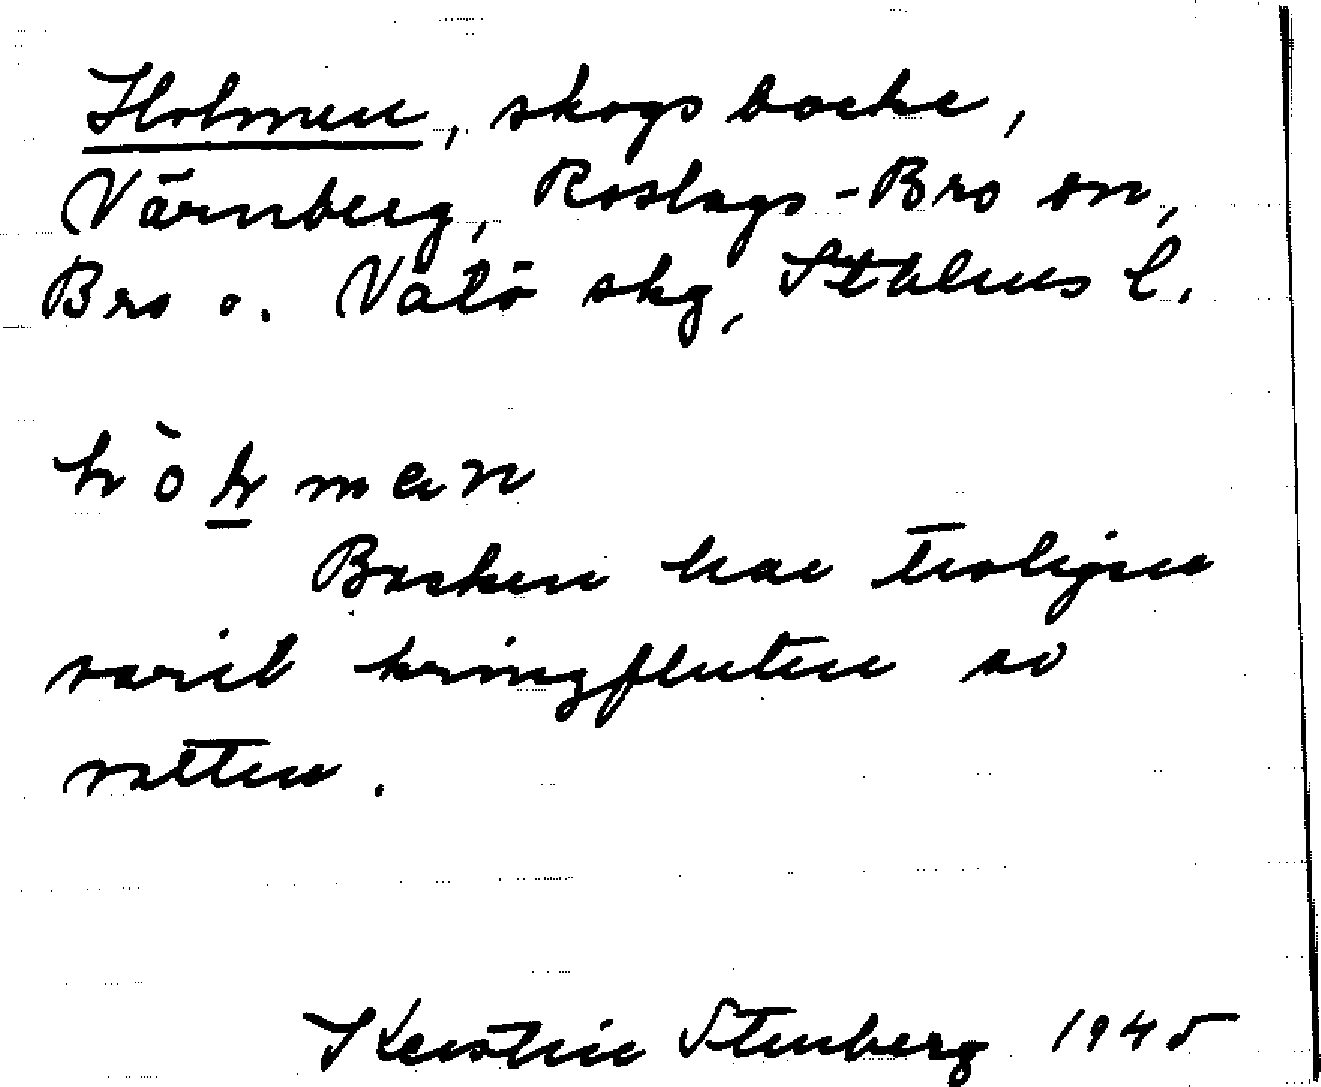 Holmen, skogsbacke,
Värnberg, Roslags-Bro sn,
Bro o. Vätö skg, Sthlms l.
hòlman
Backen har troligen
varit kringfluten av
vatten.
Kerstin Stenberg 1945